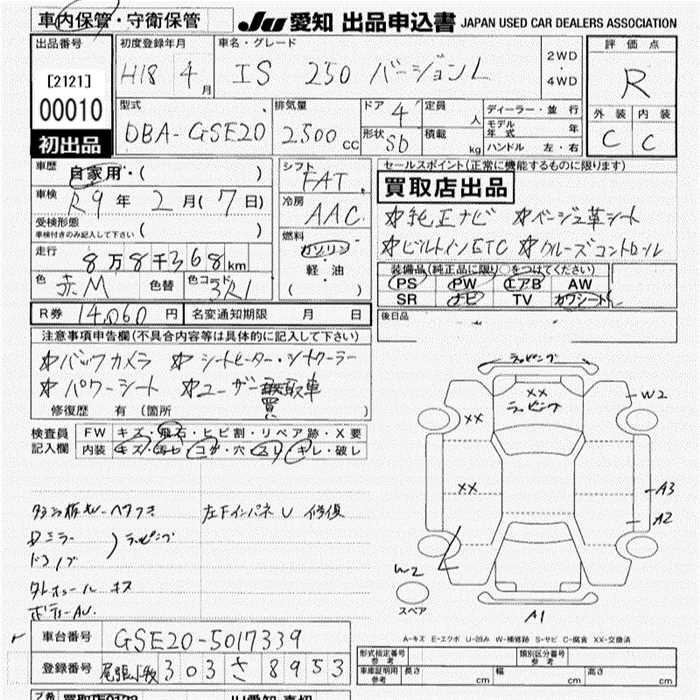 車内保管・守衛保管 JU 愛知 出品申込書 JAPAN USED CAR DEALERS ASSOCIATION
出品番号 初度登録年月 車名・グレード 評価点
[2121] H18 4月 IS 250 バージョンL 2WD・4WD R
00010 型式 排気量 ドア 4 定員 人 ディーラー・並行 外装 内装
モデル年式 年
初出品 DBA-GSE20 2500cc 形状 Sb 積載 kg ハンドル 左・右 C C
車歴 自家用・( ) シフト FAT セールスポイント(正常に機能するものに限ります)
車検 R9年 2月(7日) 冷房 AAC 買取店出品
受検形態 ( ) ☆純正ナビ ☆バージョン革シート
車検付きのみ記入して下さい
走行 8万8千368km 燃料 ガソリン・軽・油 ( ) ☆ビルトインETC ☆クルーズコントロール
色 赤M 色替 色コード 3R1 装備品(純正品に限り○をつけてください)
PS PW エアB AW
R券 14,060円 名変通知期限 月 日 SR ナビ TV カワシート
後日品
注意事項申告欄(不具合内容等は具体的に記入して下さい)
☆バックカメラ ☆シートヒーター・シートクーラー
☆パワーシート ☆ユーザー買取車
修復歴 有(箇所 )
検査員記入欄 FW キズ・飛石・ヒビ割・リペア跡・X要
内装 キズ・汚レ・コゲ・穴・スレ・キレ・破レ
ラッピング
XX
ラッピング
W2
XX
XX
A3
A2
左下インパネU 修復
ミラー
ドアノブ
ラッピング
W2
スペア
A1
A-キズ E-エクボ U-凹み W-補修跡 S-サビ C-腐食 XX-交換済
車台番号 GSE20-5017339 形式指定番号 参考 類別区分番号 参考
登録番号 尾張小牧 303 さ 8953 車庫証明用参考 長さ cm 幅 cm 高さ cm